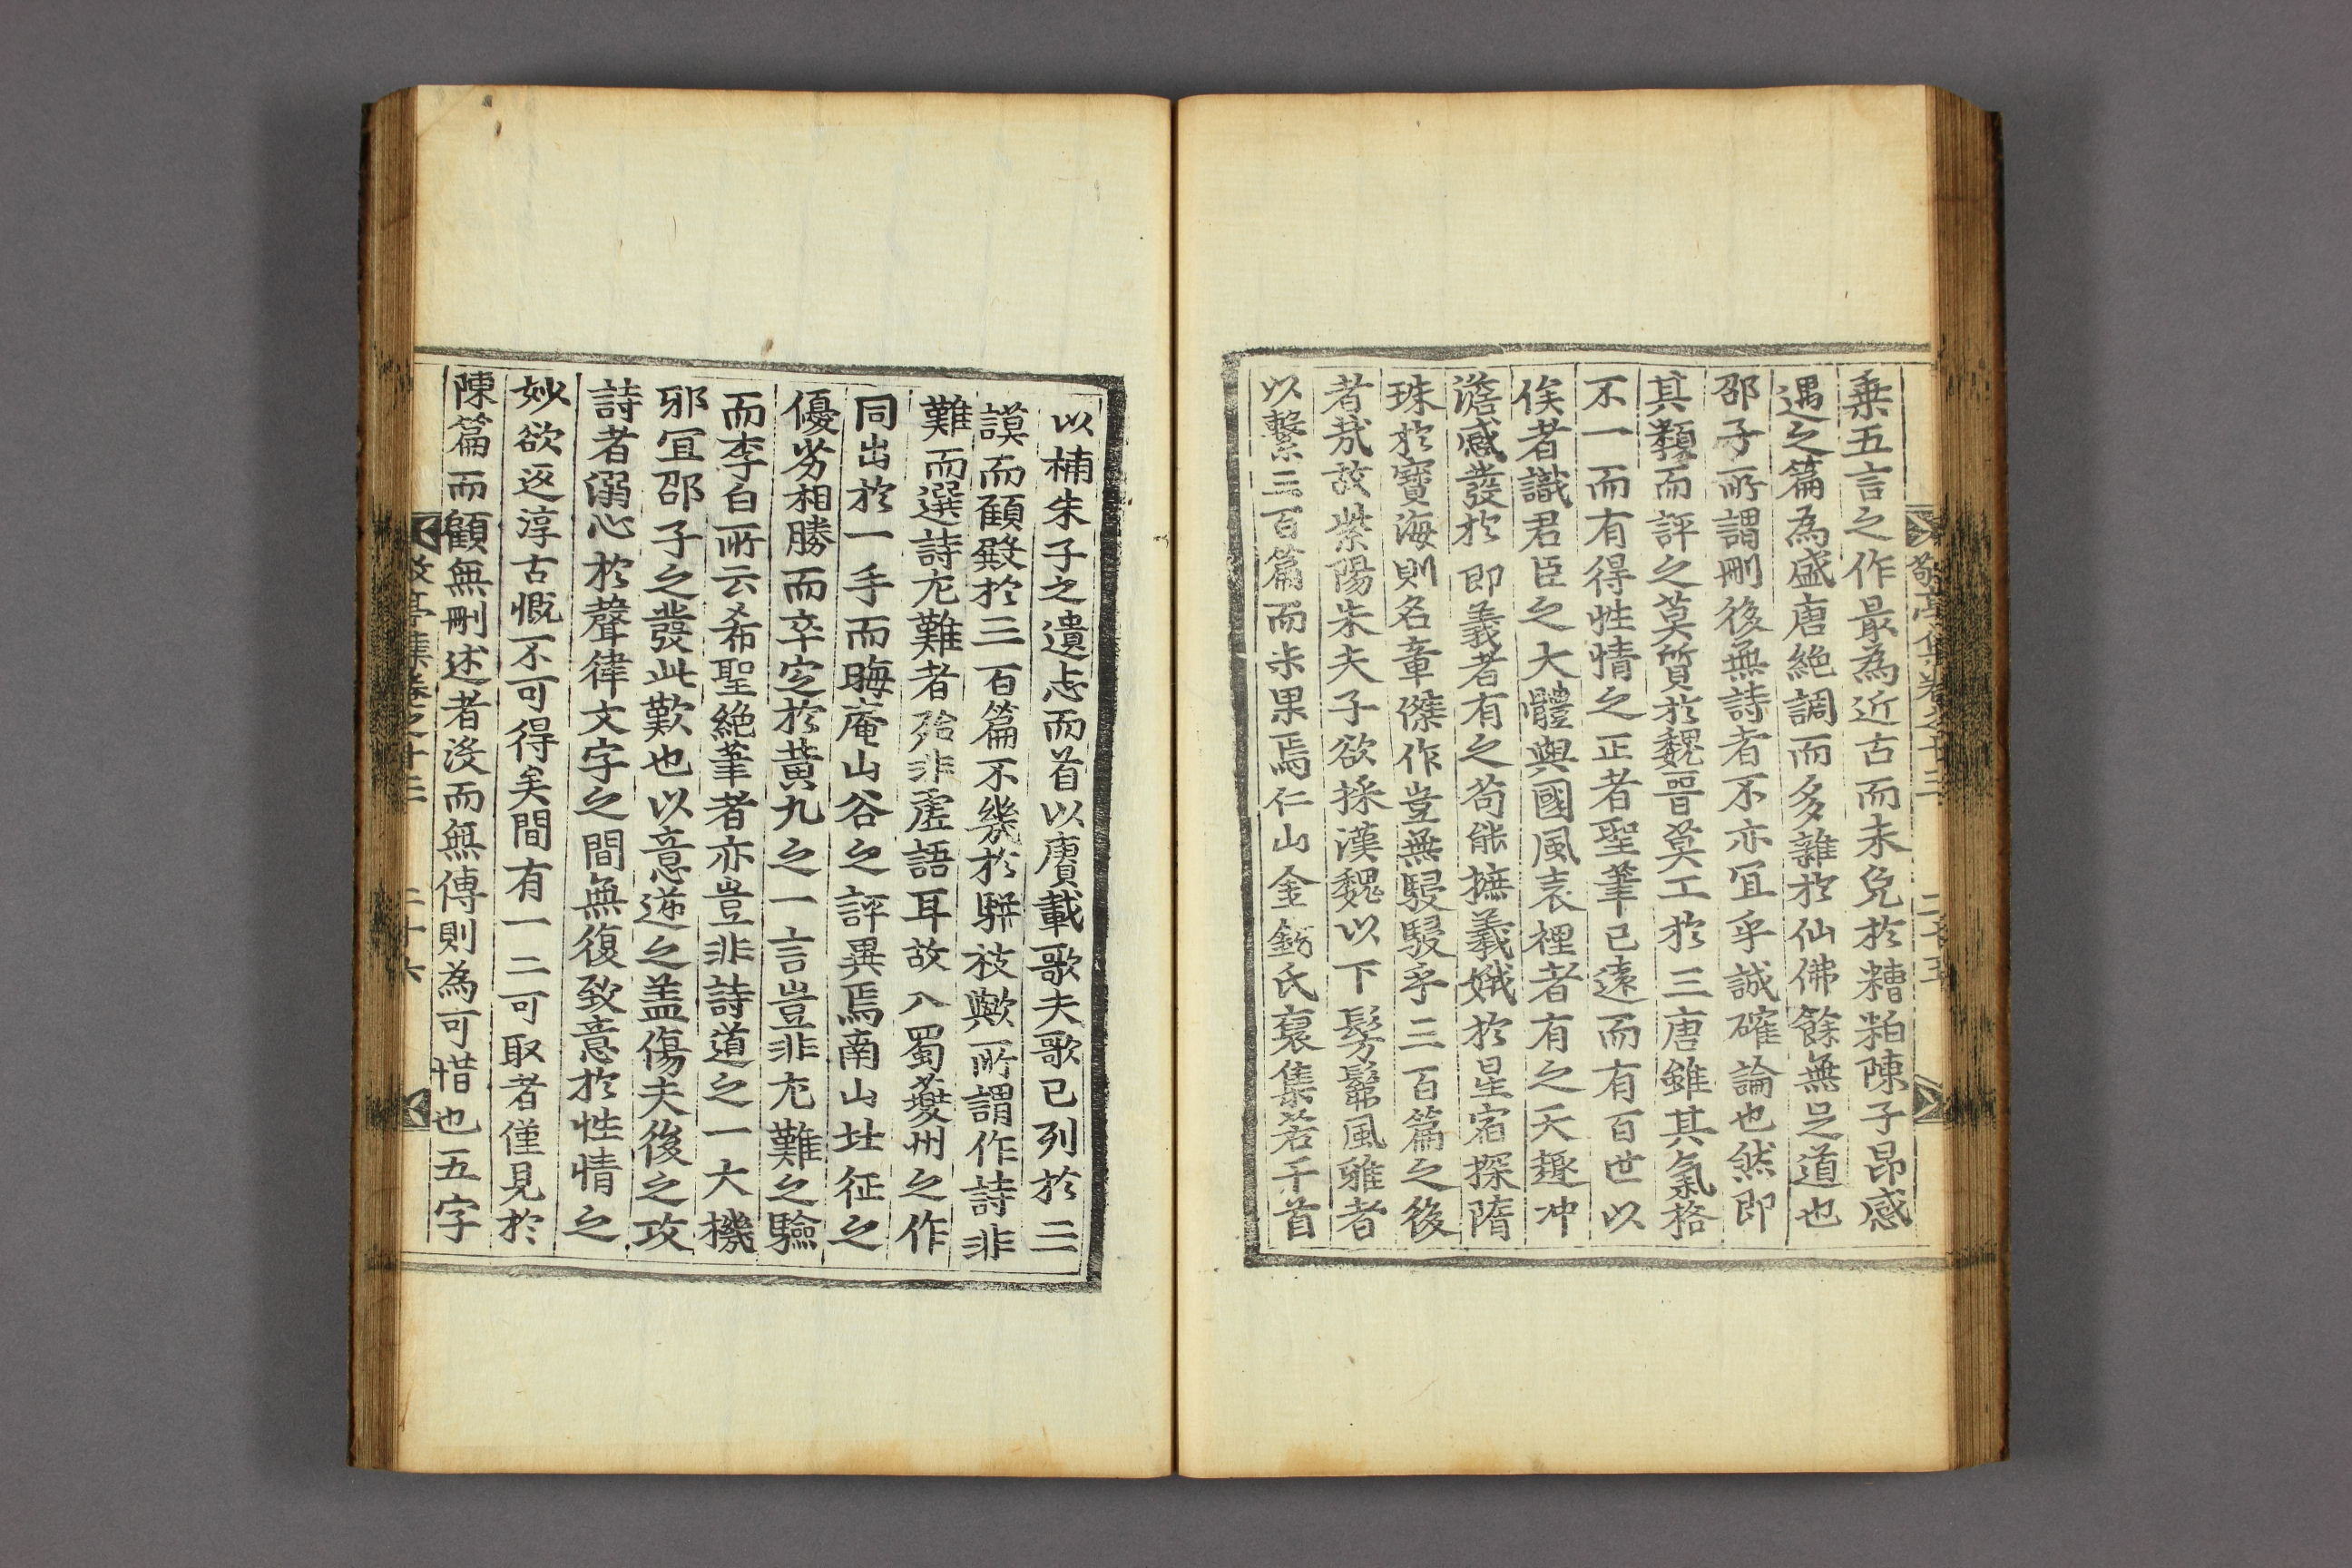 敬亭集卷之十三 二十五
乗五言之作最為近古而未免於糟粕陳子昂感
遇之篇為盛唐絶調而多雜於仙佛餘無足道也
邵子所謂刪後無詩者不亦冝乎誠確論也然即
其類而評之莫質於魏晋莫工於三唐雖其氣格
不一而有得性情之正者聖筆已遠而有百世以
俟者識君臣之大體與國風表裡者有之天趣冲
澹感發於即義者有之苟能摭義娥於星宿探隋
珠於寶海則名章傑作豈無駸駸乎三百篇之後
者㦲故紫陽朱夫子欲採漢魏以下髣髴風雅者
以繫三百篇而未果焉仁山金氏裒集若干首
以補朱子之遺志而首以賡載歌夫歌已列於三
謨而顧殿於三百篇不幾於駢枝歟所謂作詩非
難而選詩尤難者殆非虛語耳故入蜀夔州之作
同出於一手而晦庵山谷之評異焉南山北征之
優劣相勝而卒定於黄九之一言豈非尤難之驗
而李白所云希聖絶筆者亦豈非詩道之一大機
邪冝邵子之發此歎也以意逆之盖傷夫後之攻
詩者溺心於聲律文字之間無復致意於性情之
妙欲返淳古慨不可得矣間有一二可取者僅見於
陳篇而顧無刪述者沒而無傳則為可惜也五字
敬亭集卷之十三 二十六